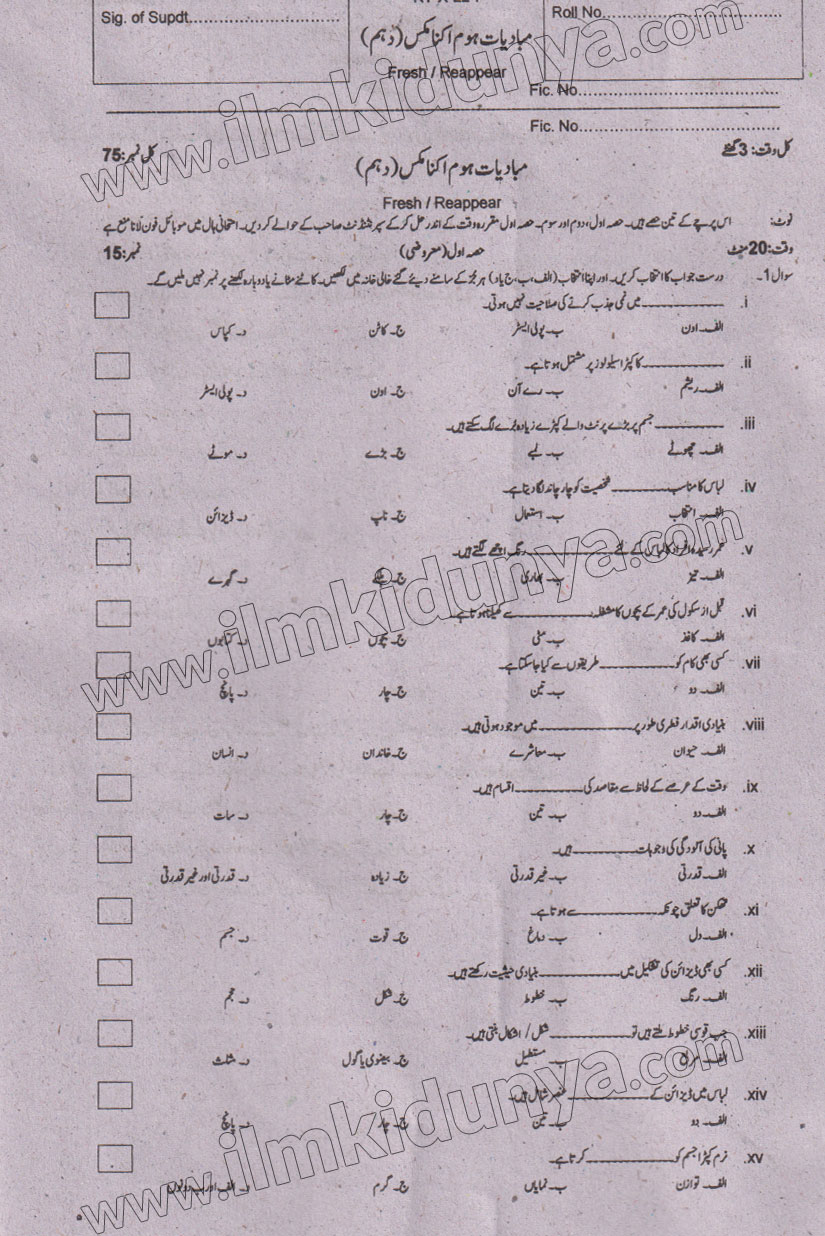 Sig. of Supdt.
Roll No.
مبادیات ہوم اکنامکس (دہم)
Fresh / Reappear
Fic. No.
Fic. No.
کل وقت: 3 گھنٹے
کل نمبر: 75
مبادیات ہوم اکنامکس (دہم)
Fresh / Reappear
نوٹ: اس پرچے کے تین حصے ہیں۔ حصہ اول، دوم اور سوم۔ حصہ اول مقررہ وقت کے اندر حل کر کے سپرنٹنڈنٹ صاحب کے حوالے کر دیں۔ امتحانی ہال میں موبائل فون لانا منع ہے
وقت: 20 منٹ حصہ اول (معروضی) نمبر: 15
سوال 1۔ درست جواب کا انتخاب کریں۔ اور اپنا انتخاب (الف، ب، ج یا د) ہر جُز کے سامنے دیئے گئے خالی خانہ میں لکھیں۔ کاٹنے مٹانے یا دوبارہ لکھنے پر نمبر نہیں ملیں گے۔
i. ـــــــــــ میں نمی جذب کرنے کی صلاحیت نہیں ہوتی۔
الف۔ اون ب۔ پولی ایسٹر ج۔ کاٹن د۔ کپاس
ii. ـــــــــــ کا کپڑا سیلولوز پر مشتمل ہوتا ہے۔
الف۔ ریشم ب۔ رے آن ج۔ اون د۔ پولی ایسٹر
iii. ـــــــــــ جسم پر بڑے پرنٹ والے کپڑے زیادہ بُرے لگ سکتے ہیں۔
الف۔ چھوٹے ب۔ لمبے ج۔ بڑے د۔ موٹے
iv. لباس کا مناسب ـــــــــــ شخصیت کو چار چاند لگا دیتا ہے۔
الف۔ انتخاب ب۔ استعمال ج۔ ناپ د۔ ڈیزائن
v. عمر رسیدہ افراد کا لباس کے لئے ـــــــــــ رنگ اچھے لگتے ہیں۔
الف۔ تیز ب۔ بھاری ج۔ ہلکے د۔ گہرے
vi. قبل از سکول کی عمر کے بچوں کا مشغلہ ـــــــــــ سے کھیلنا ہوتا ہے۔
الف۔ کاغذ ب۔ مٹی ج۔ بچوں د۔ کتابوں
vii. کسی بھی کام کو ـــــــــــ طریقوں سے کیا جا سکتا ہے۔
الف۔ دو ب۔ تین ج۔ چار د۔ پانچ
viii. بنیادی اقدار فطری طور پر ـــــــــــ میں موجود ہوتی ہیں۔
الف۔ حیوان ب۔ معاشرے ج۔ خاندان د۔ انسان
ix. وقت کے عرصے کے لحاظ سے مقاصد کی ـــــــــــ اقسام ہیں۔
الف۔ دو ب۔ تین ج۔ چار د۔ سات
x. پانی کی آلودگی کی وجوہات ـــــــــــ ہیں۔
الف۔ قدرتی ب۔ غیر قدرتی ج۔ زیادہ د۔ قدرتی اور غیر قدرتی
xi. تھکن کا تعلق چونکہ ـــــــــــ سے ہوتا ہے۔
الف۔ دل ب۔ دماغ ج۔ قوت د۔ جسم
xii. کسی بھی ڈیزائن کی تشکیل میں ـــــــــــ بنیادی حیثیت رکھتے ہیں۔
الف۔ رنگ ب۔ خطوط ج۔ شکل د۔ حجم
xiii. جب قوسی خطوط ملتے ہیں تو ـــــــــــ شکل / اشکال بنتی ہیں۔
الف۔ مربع ب۔ مستطیل ج۔ بیضوی یا گول د۔ مثلث
xiv. لباس میں ڈیزائن کے ـــــــــــ عنصر شامل ہیں۔
الف۔ دو ب۔ تین ج۔ چار د۔ پانچ
xv. نرم کپڑا جسم کو ـــــــــــ کرتا ہے۔
الف۔ توازن ب۔ نمایاں ج۔ گرم د۔ الف اور ب دونوں
www.ilmkidunya.com
www.ilmkidunya.com
www.ilmkidunya.com